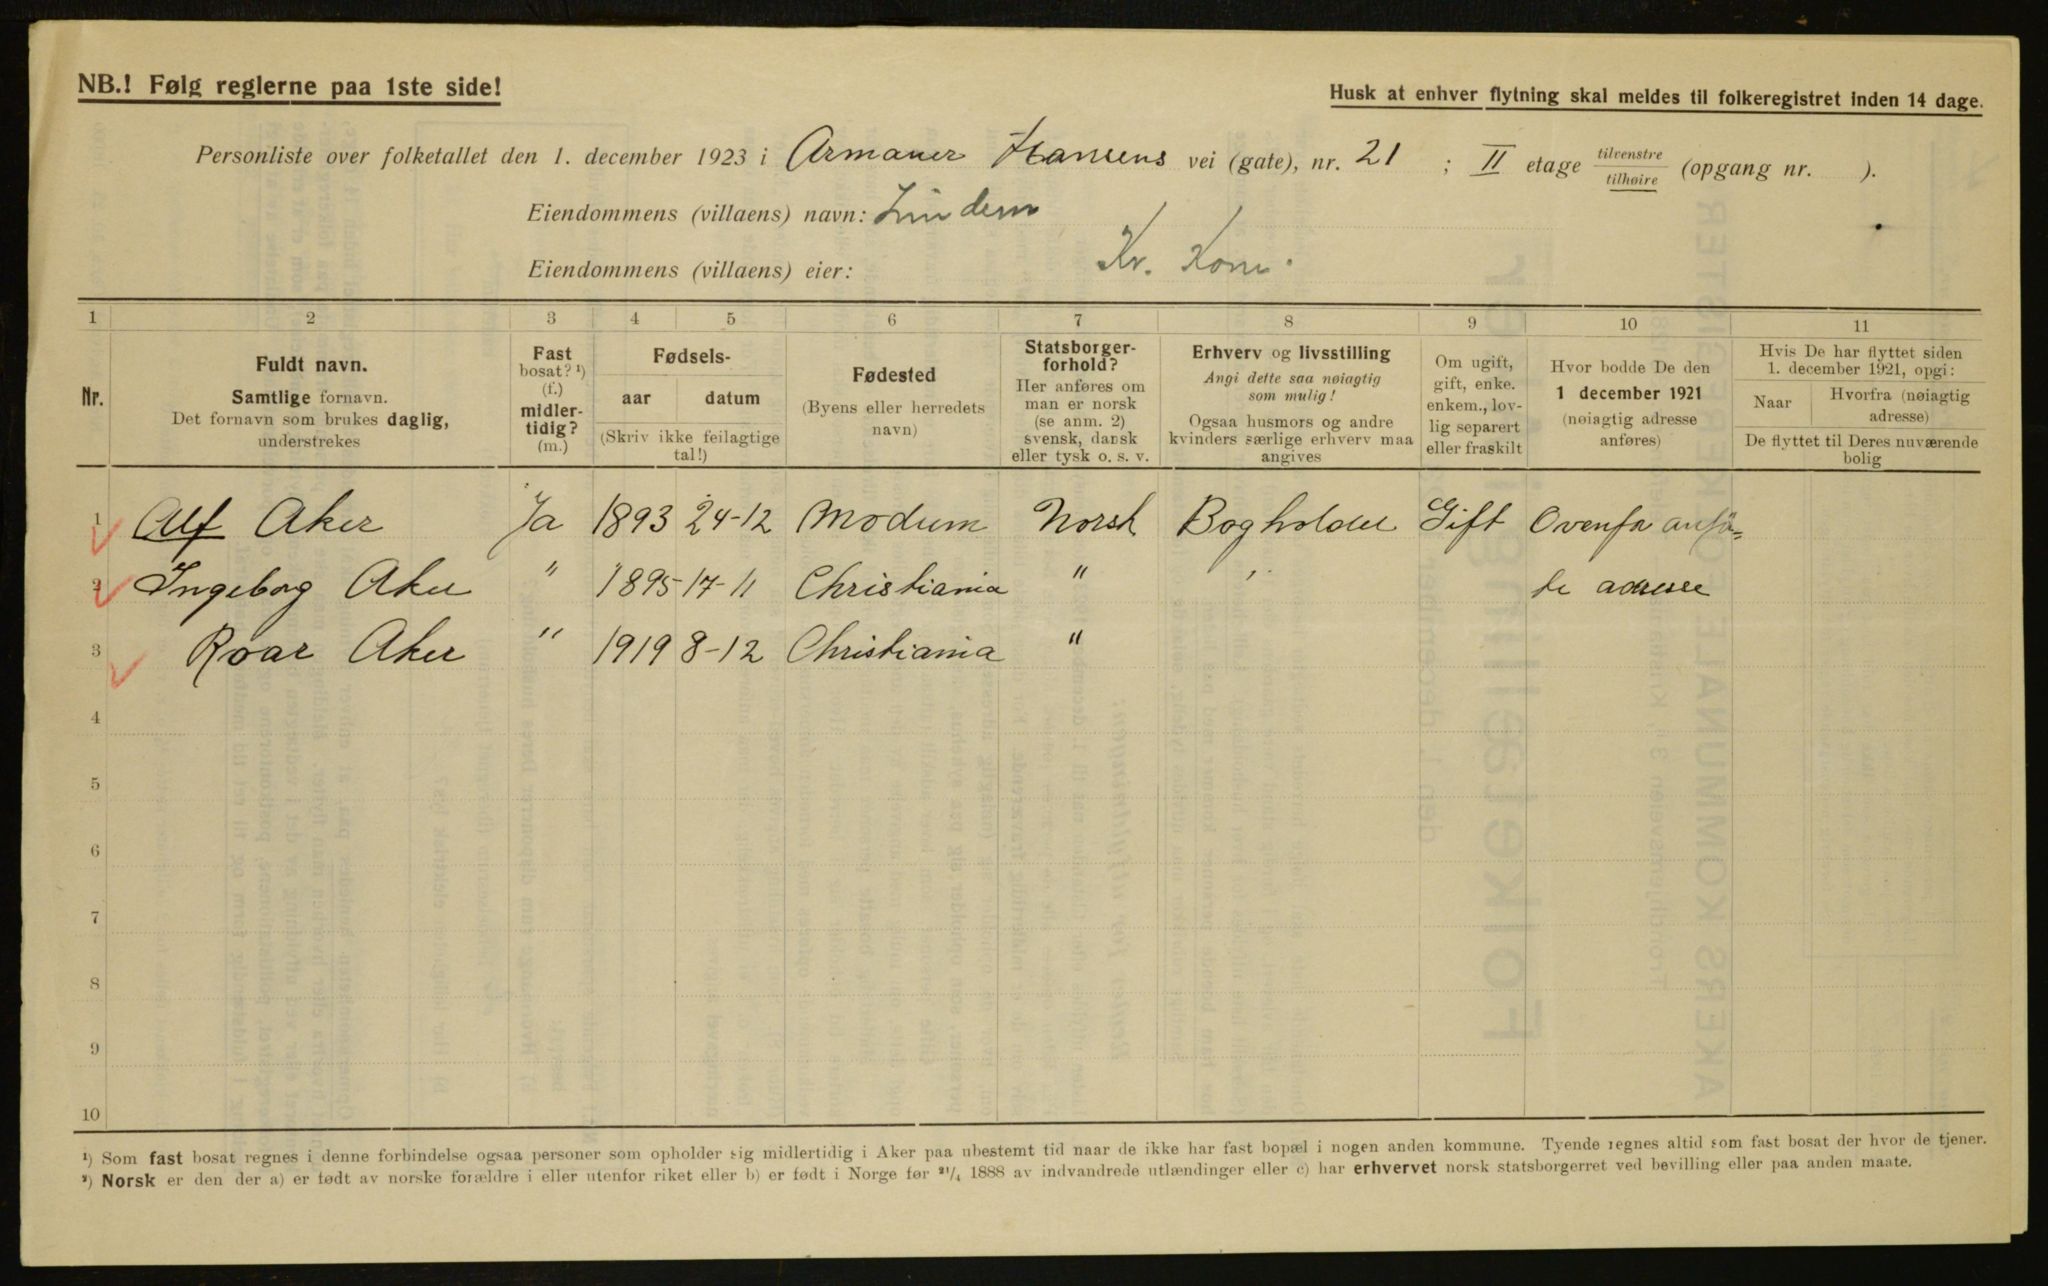 NB.! Følg reglerne paa 1ste side!
Husk at enhver flytning skal meldes til folkeregistret inden 14 dage.
Personliste over folketallet den 1. december 1923 i Armauer Hansens vei (gate), nr. 21 ; II etage tilvenstre tilhøire (opgang nr. ).
Eiendommens (villaens) navn: Lindern
Eiendommens (villaens) eier: Kr. Kom.
1 2 3 4 5 6 7 8 9 10 11
Nr.
Fuldt navn.
Samtlige fornavn.
Det fornavn som brukes daglig,
understrekes
Fast
bosat? ¹)
(f.)
midler-
tidig?
(m.)
Fødsels-
aar datum
(Skriv ikke feilagtige
tal!)
Fødested
(Byens eller herredets
navn)
Statsborger-
forhold?
Her anføres om
man er norsk
(se anm. 2)
svensk, dansk
eller tysk o. s. v.
Erhverv og livsstilling
Angi dette saa nøiagtig
som mulig!
Ogsaa husmors og andre
kvinders særlige erhverv maa
angives
Om ugift,
gift, enke.
enkem., lov-
lig separert
eller fraskilt
Hvor bodde De den
1 december 1921
(nøiagtig adresse
anføres)
Hvis De har flyttet siden
1. december 1921, opgi:
Naar
Hvorfra (nøiagtig
adresse)
De flyttet til Deres nuværende
bolig
1 Alf Aker Ja 1893 24-12 Modum Norsk Bogholder Gift Ovenfr anfø-
2 Ingeborg Aker " 1895 17-11 Christiania " " te adresse
3 Roar Aker " 1919 8-12 Christiania "
4
5
6
7
8
9
10
¹) Som fast bosat regnes i denne forbindelse ogsaa personer som opholder sig midlertidig i Aker paa ubestemt tid naar de ikke har fast bopæl i nogen anden kommune. Tyende regnes altid som fast bosat der hvor de tjener.
²) Norsk er den der a) er født av norske forældre i eller utenfor riket eller b) er født i Norge før ²¹/₄ 1888 av indvandrede utlændinger eller c) har erhvervet norsk statsborgerret ved bevilling eller paa anden maate.